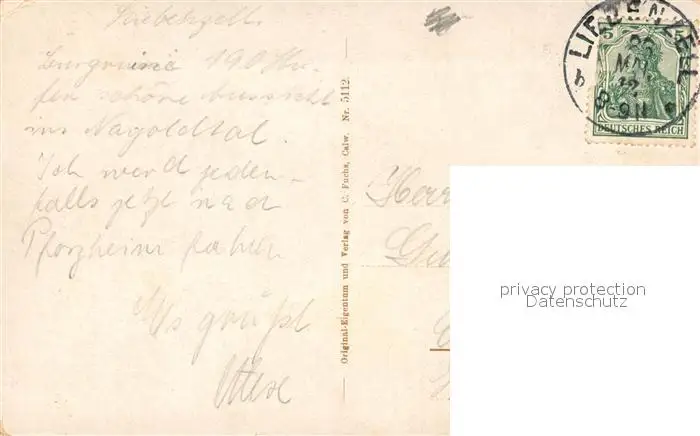 Liebenzell.
Burgruine 190 Stu-
fen schöne Aussicht
ins Nagoldtal.
Ich werd jeden-
falls jetzt nach
Pforzheim fahren
grüßt
Original-Eigentum und Verlag von C. Fuchs, Calw. Nr. 5112.
LIEBENZELL
8-9 N
5 5
DEUTSCHES REICH
Herr
privacy protection
Datenschutz